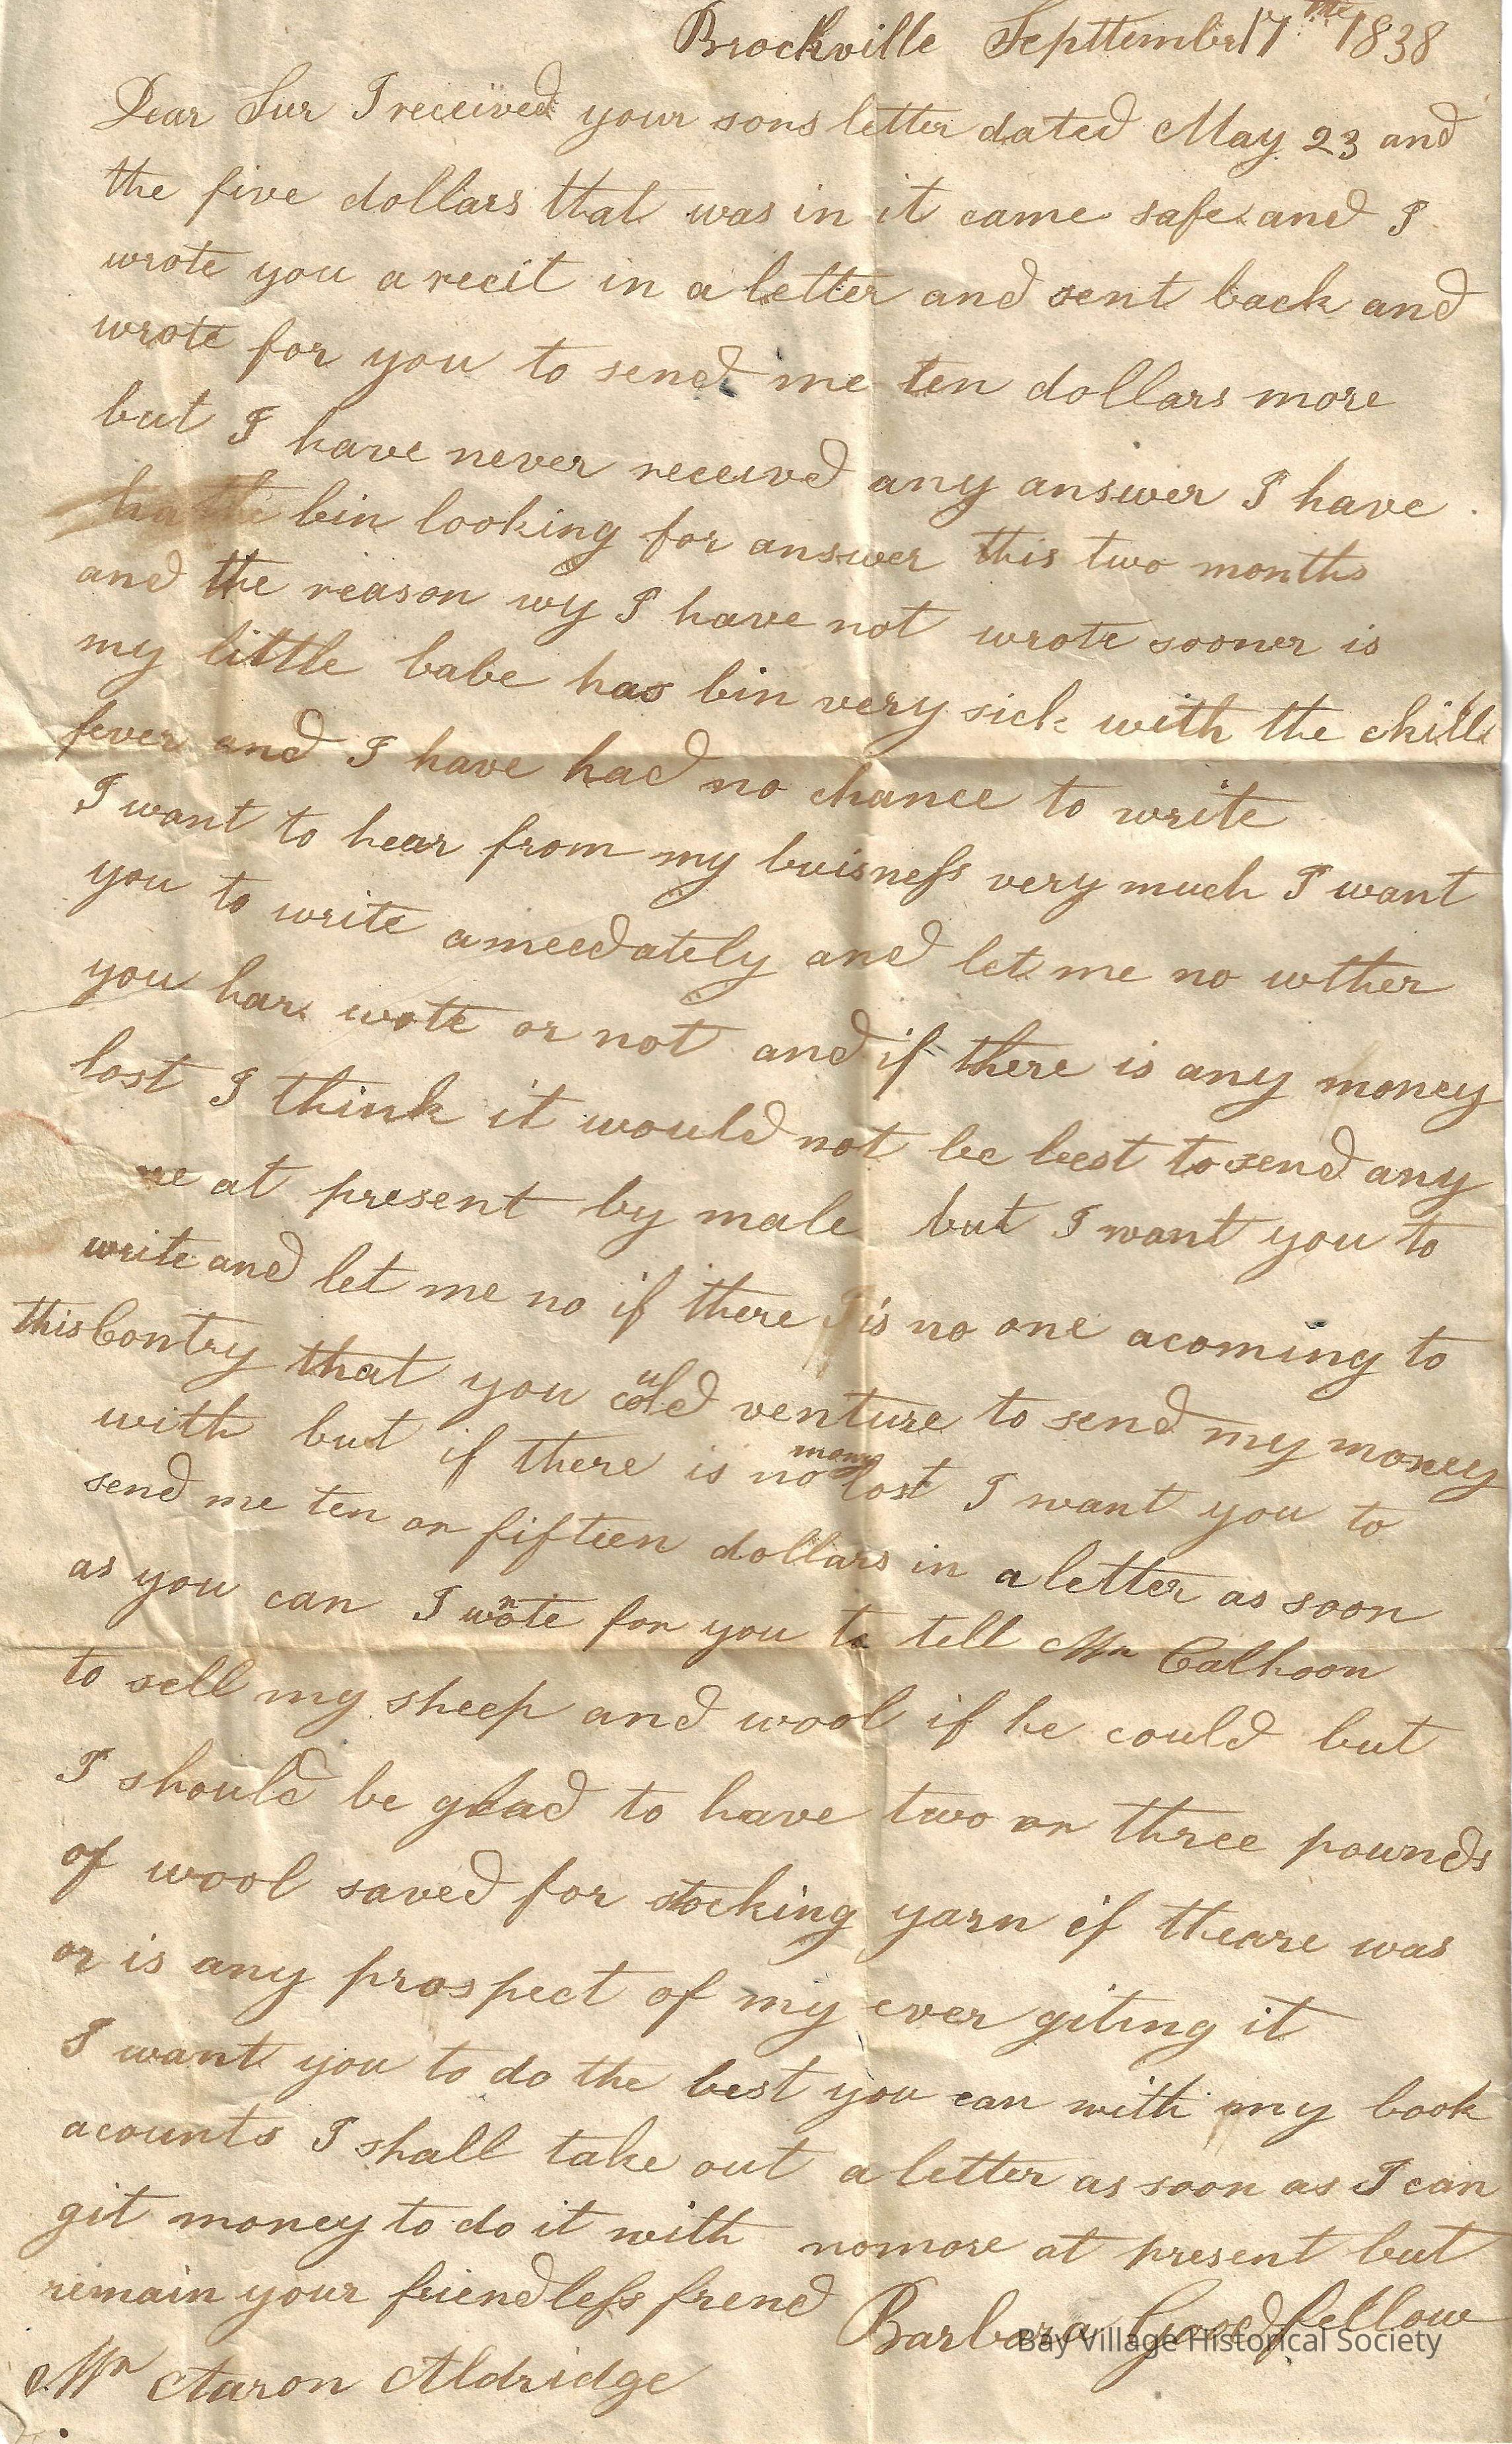 Brockville Septtember 17the 1838
Dear Sur I received your sons letter dated May 23 and
the five dollars that was in it came safe and I
wrote you a recit in a letter and sent back and
wrote for you to send me ten dollars more
but I have never receivd any answer I have
bin looking for answer this two months
and the reason wy I have not wrote sooner is
my little babe has bin very sick with the chill
fever and I have had no chance to write
I want to hear from my buisness very much I want
you to write ameedately and let me no wther
you have wote or not and if there is any money
lost I think it would not be beest to send any
at present by male but I want you to
write and let me no if there is no one acoming to
this Contry that you could venture to send my money
with but if there is no mony lost I want you to
send me ten or fifteen dollars in a letter as soon
as you can I wrote for you to tell Mr Calhoon
to sell my sheep and wool if he could but
I should be glad to have two or three pounds
of wool saved for stocking yarn if theare was
or is any prospect of my ever giting it
I want you to do the best you can with my book
acounts I shall take out a letter as soon as I can
git money to do it with nomore at present but
remain your friendless frend Barbara Goodfellow
Mr Aaron Aldridge
Bay Village Historical Society